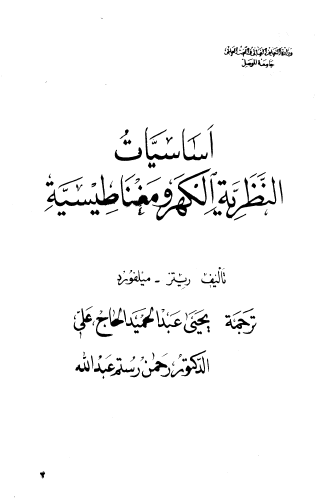 وزارة التعليم العالي والبحث العلمي
جامعة الموصل
أَسَاسيَّاتُ
النَّظَريَّةِ الكَهرومَغناطِيسيَّةِ
تأليف ريتز - ميلفورد
ترجمة يحيى عبد الحميد الحاج علي
الدكتور رحمن رستم عبد الله